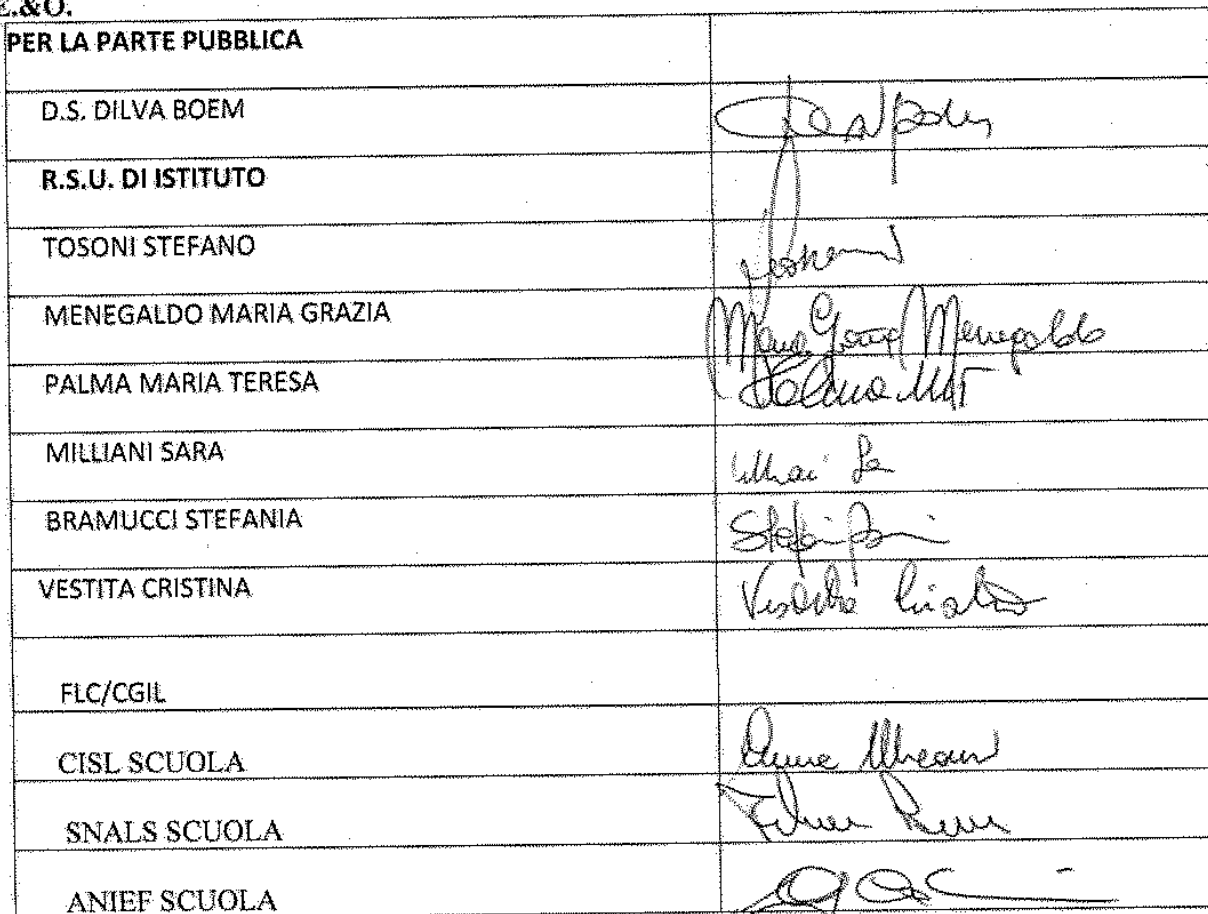 E.&O.
PER LA PARTE PUBBLICA
D.S. DILVA BOEM
R.S.U. DI ISTITUTO
TOSONI STEFANO
MENEGALDO MARIA GRAZIA Maria Grazia Menegaldo
PALMA MARIA TERESA Palma MT
MILLIANI SARA
BRAMUCCI STEFANIA
VESTITA CRISTINA Vestita Cristina
FLC/CGIL
CISL SCUOLA
SNALS SCUOLA
ANIEF SCUOLA